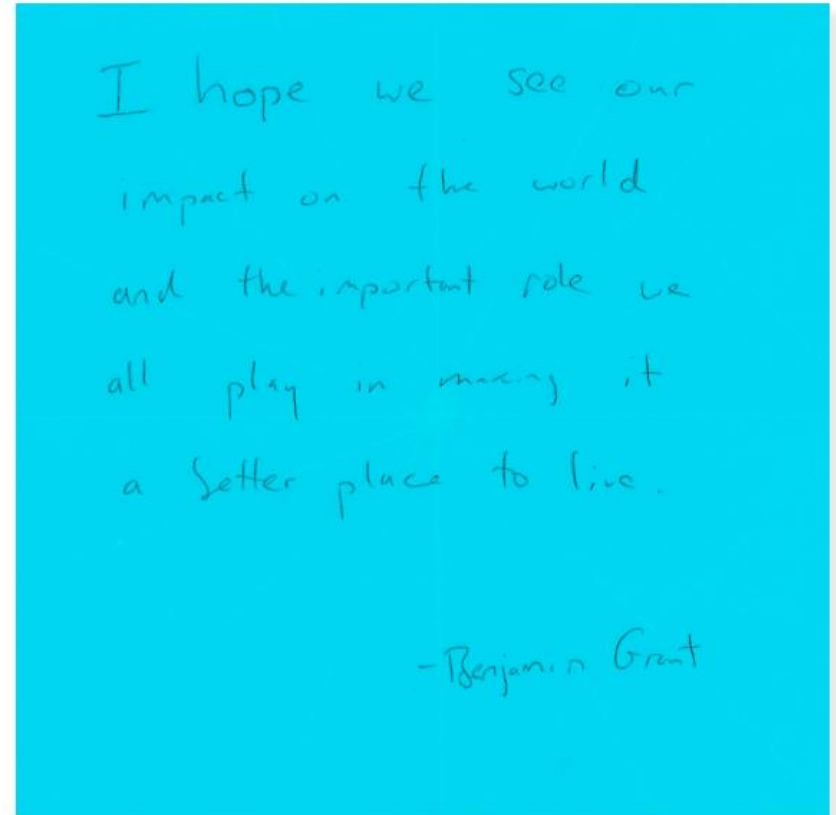 I hope we see our
impact on the world
and the important role we
all play in making it
a better place to live.
-Benjamin Grant